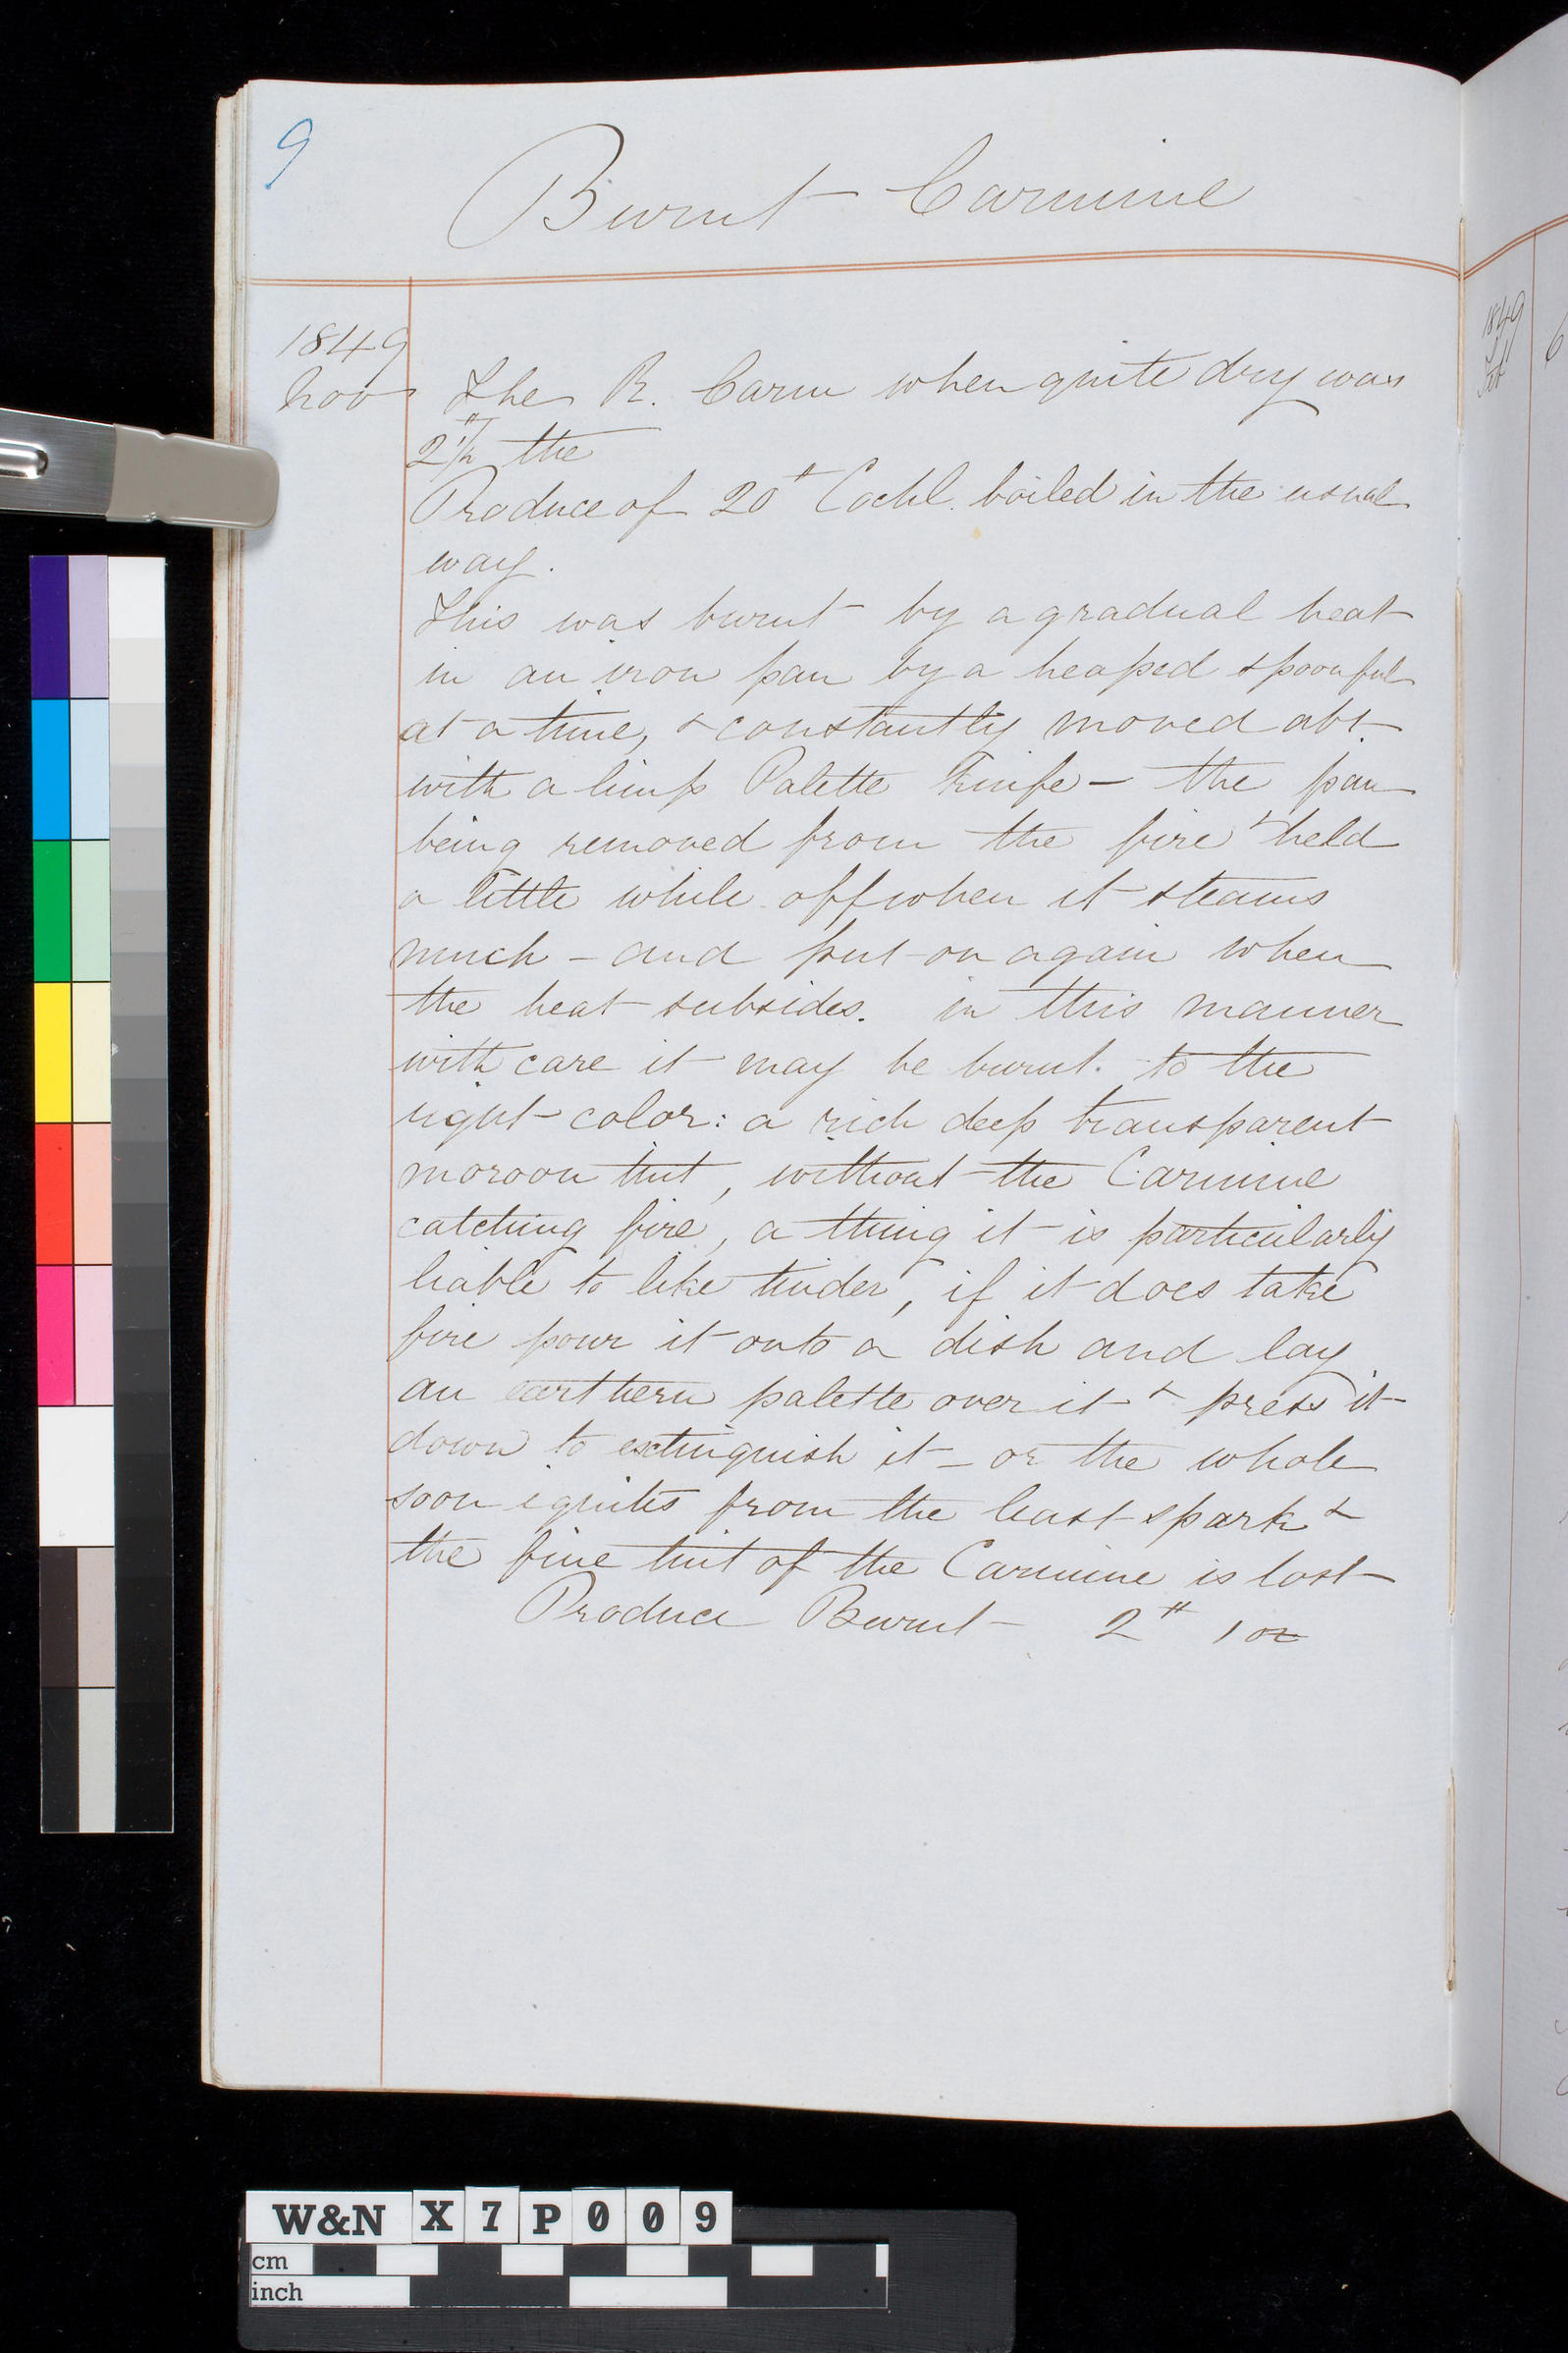 9
Burnt Carmine
1849
Nov The R. Carm when quite dry was
2 1/2 # the
Produce of 20# Cochl. boiled in the usual
way.
This was burnt by a gradual heat
in an iron pan by a heaped spoonful
at a time, & constantly moved abt.
with a limp Palette Knife – the pan
being removed from the fire & held
a little while off when it steams
much – and put on again when
the heat subsides. in this manner
with care it may be burnt. to the
right color: a rich deep transparent
moroon tint, without the Carmine
catching fire, a thing it is particularly
liable to like tinder, if it does take
fire pour it onto a dish and lay
an earthern palette over it & press it
down to extinguish it – or the whole
soon ignites from the least spark &
the fine tint of the Carmine is lost
Produce Burnt – 2# 1 oz
1849
W&N X7P009
cm
inch